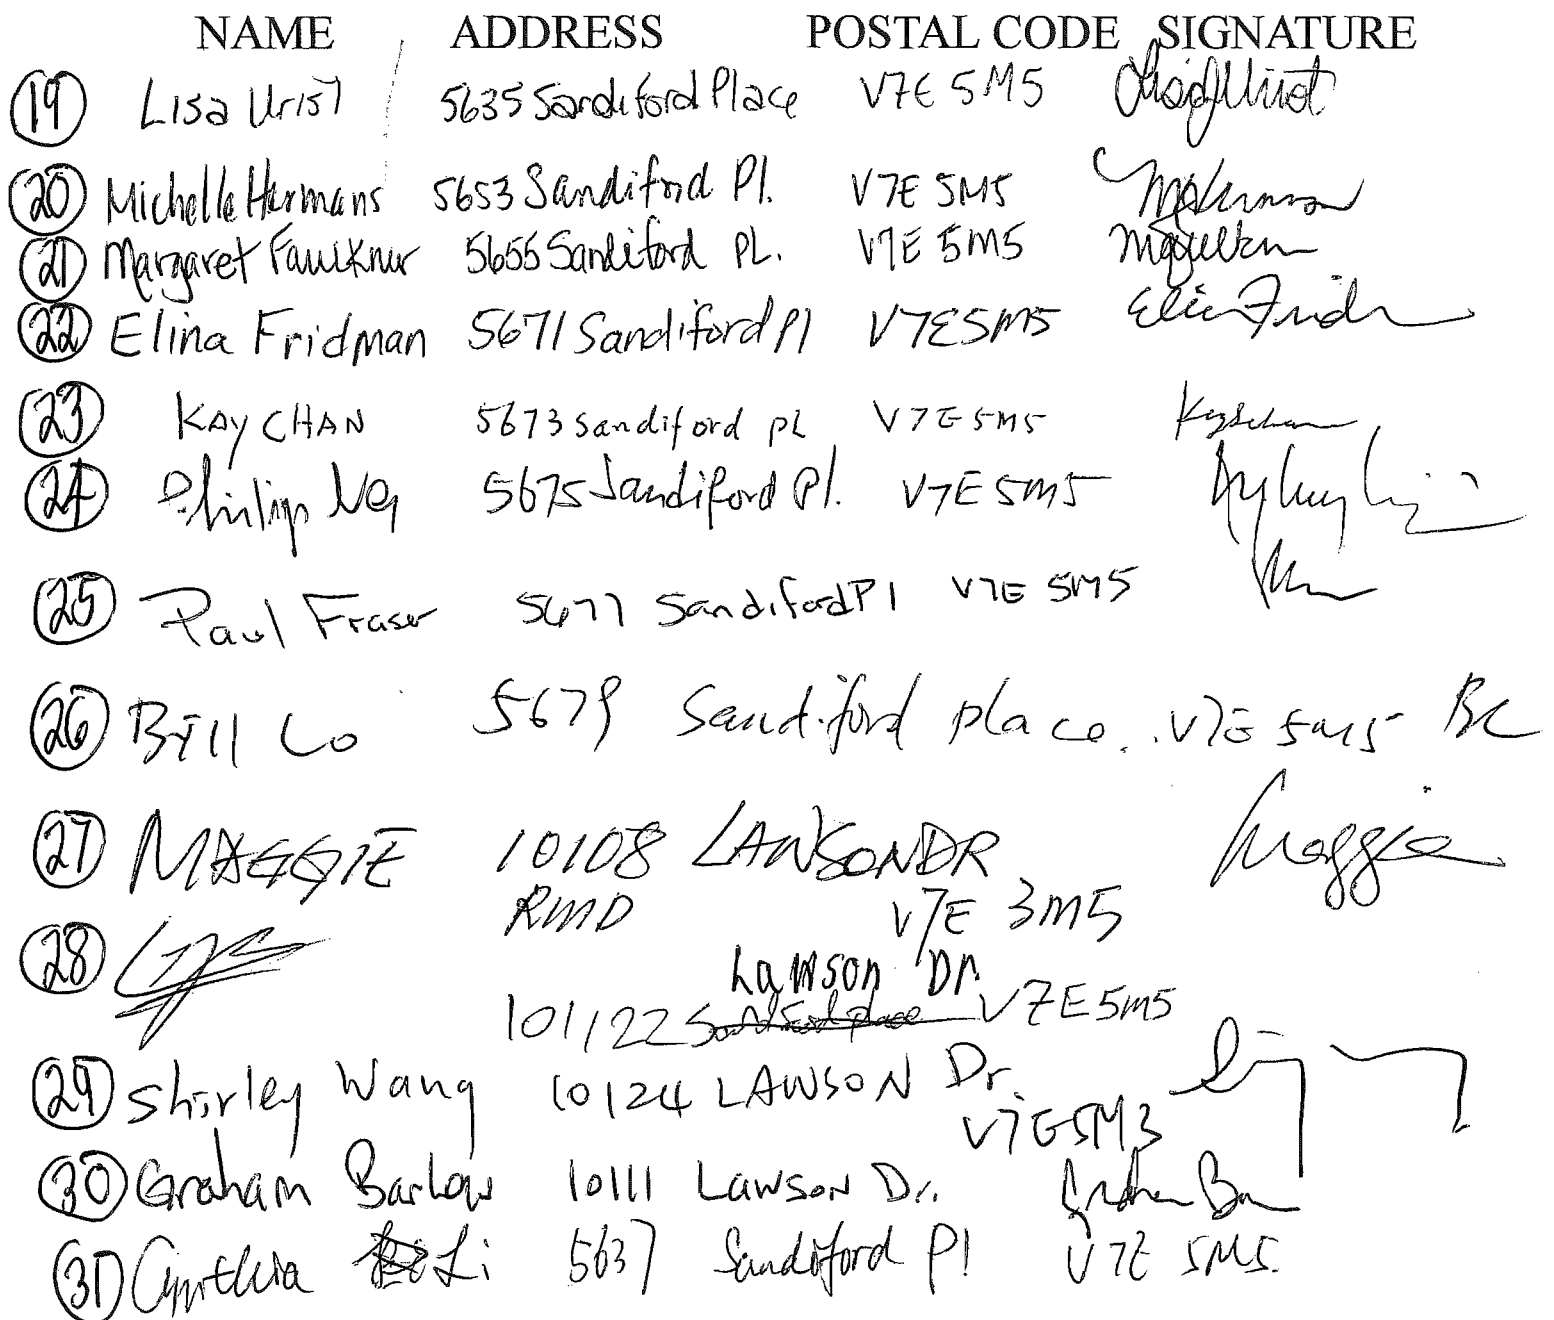 NAME ADDRESS POSTAL CODE SIGNATURE
19 Lisa Urist 5635 Sandiford Place V7E 5M5
20 Michelle Hermans 5653 Sandiford Pl. V7E 5M5
21 Margaret Faulkner 5655 Sandiford PL. V7E 5M5
22 Elina Fridman 5671 Sandiford Pl V7E5M5
23 KAY CHAN 5673 Sandiford PL V7E 5M5
24 Philip Ng 5675 Sandiford Pl. V7E 5M5
25 Paul Fraser 5677 Sandiford Pl V7E 5M5
26 Bill Lo 5679 Sandiford place. V7E 5M5 BC
27 MAGGIE 10108 LAWSON DR Maggie
RMD V7E 3M5
28
Lawson Dr.
10122 V7E5M5
29 Shirley Wang 10124 LAWSON Dr.
V7E5M3
30 Graham Barlow 10111 LAWSON Dr.
31 Cynthia Li 5637 Sandiford Pl V7E 5M5.